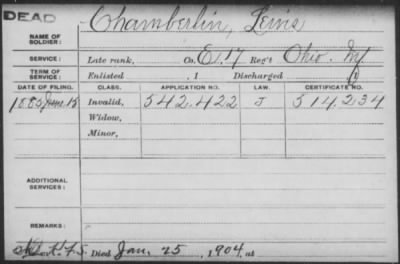 DEAD
Chamberlin, Lewis
NAME OF
SOLDIER:
SERVICE: Late rank, Co. E, 17 Reg't Ohio Inf
TERM OF
SERVICE: Enlisted , 1 Discharged , 1
DATE OF FILING. CLASS. APPLICATION NO. LAW. CERTIFICATE NO.
1885 June 15 Invalid, 542.422 J 514.234
Widow,
Minor,
ADDITIONAL
SERVICES:
REMARKS:
Died Jan. 25, 1904, at